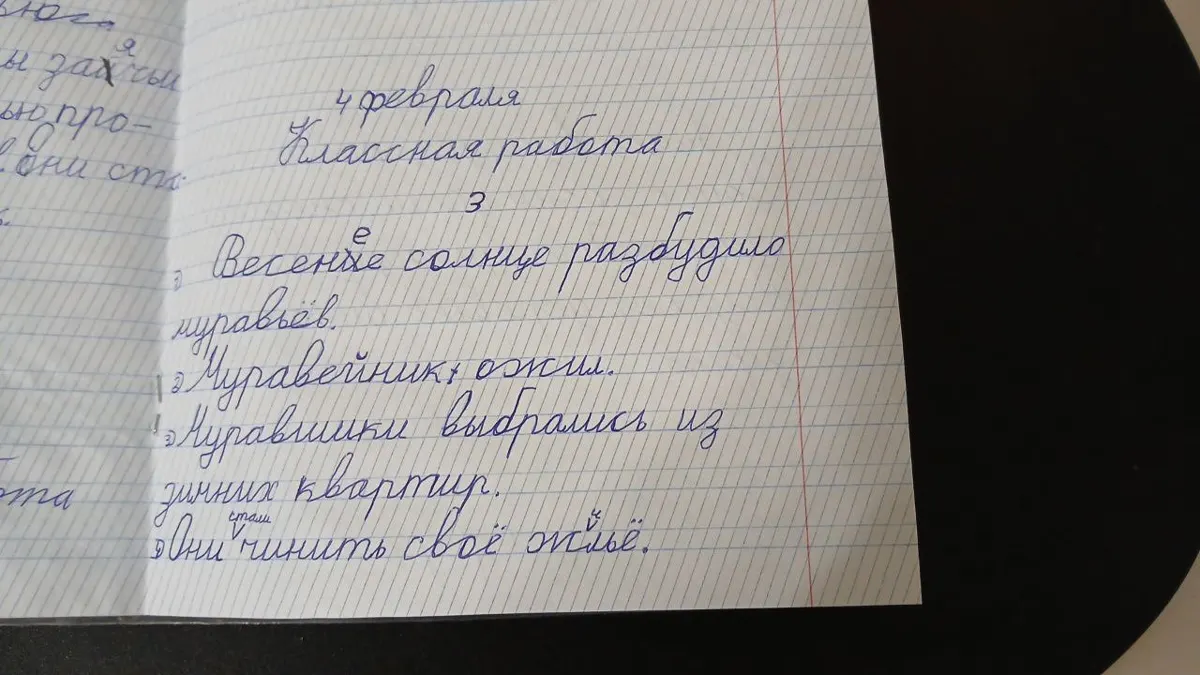 вьюга
ы зая чьи
ью про-
Они ста
ота
4 февраля
Классная работа
3
1) Весенее солнце разбудило
муравьёв.
2) Муравейник ожил.
3) Муравшики выбрались из
зимних квартир.
4) Они стали чинить своё жильё.